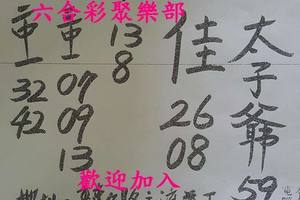 六合彩聚樂部
太子爺
59
佳
26
08
13
8
重
07
09
13
重
32
42
歡迎加入